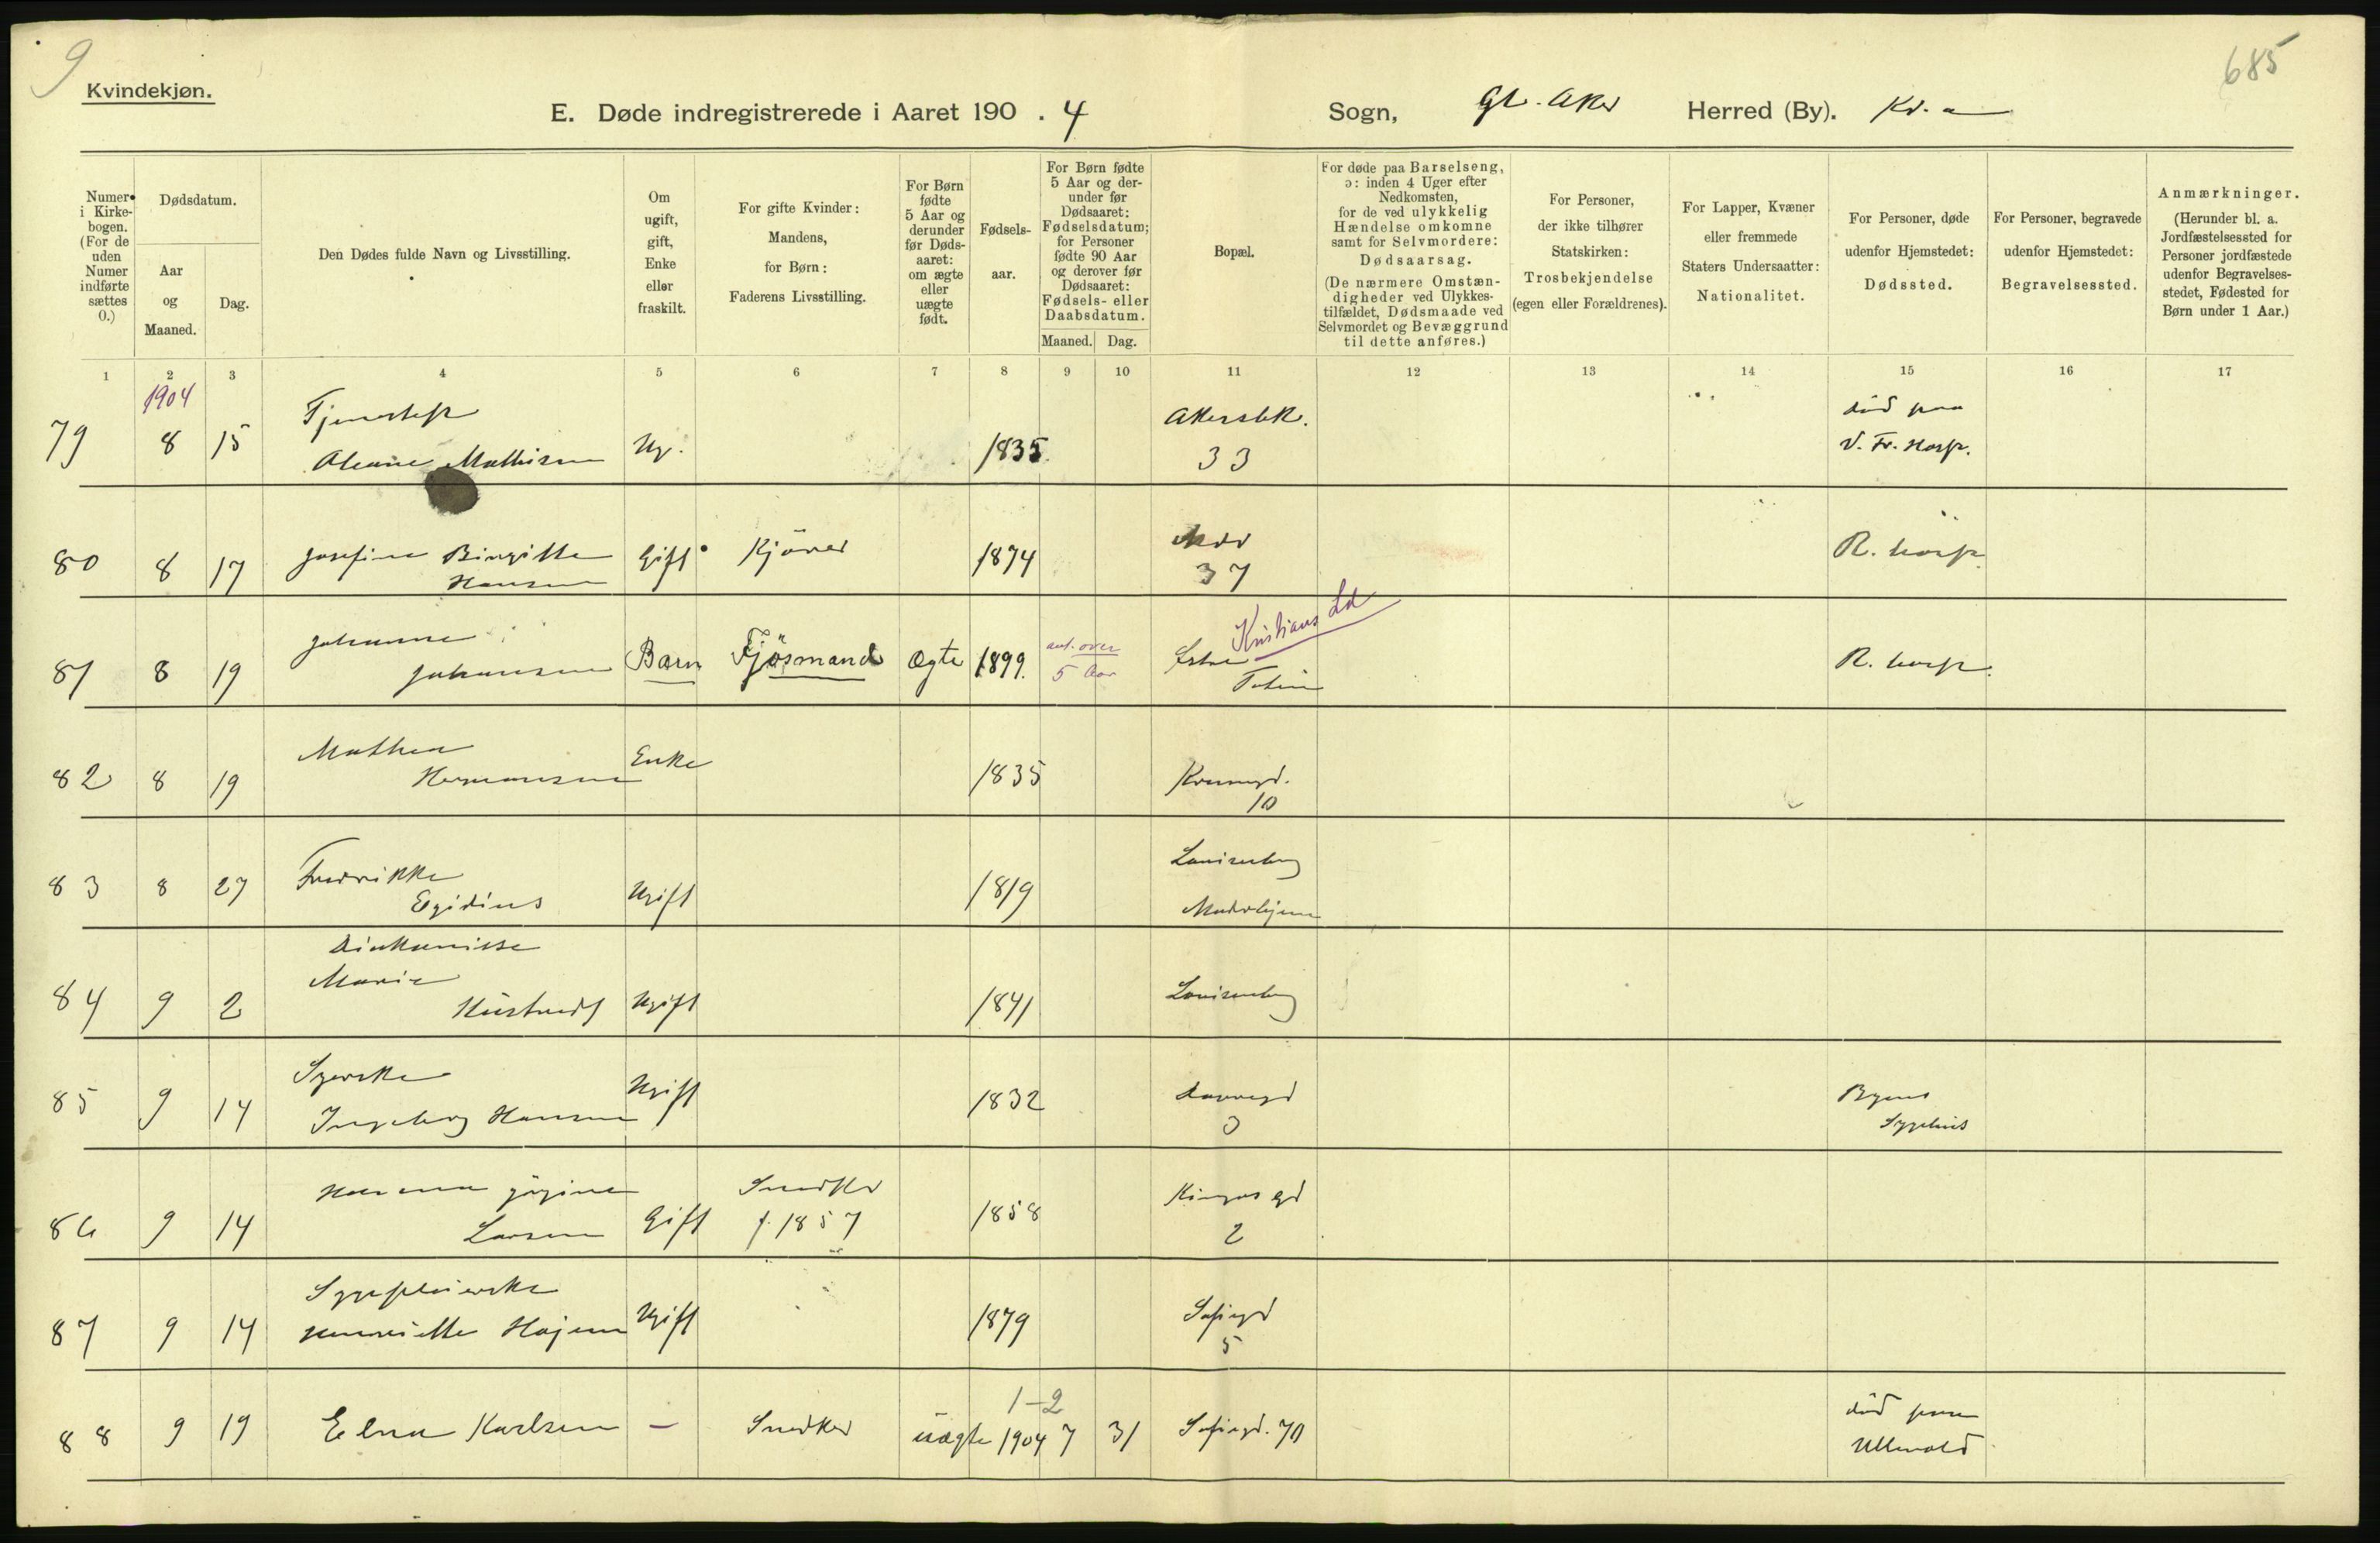 9
685
Kvindekjøn.
E. Døde indregistrerede i Aaret 190 . 4 Sogn, Gl. Aker Herred (By). Kr.a
Numer i Kirkebogen. (For de uden Numer indførte sættes 0.)
Dødsdatum.
Aar og Maaned.
Dag.
Den Dødes fulde Navn og Livsstilling.
Om ugift, gift, Enke eller fraskilt.
For gifte Kvinder: Mandens, for Børn: Faderens Livsstilling.
For Børn fødte 5 Aar og derunder før Dødsaaret: om ægte eller uægte født.
Fødselsaar.
For Børn fødte 5 Aar og derunder før Dødsaaret: Fødselsdatum; for Personer fødte 90 Aar og derover før Dødsaaret: Fødsels- eller Daabsdatum.
Maaned. Dag.
Bopæl.
For døde paa Barselseng, ɔ: inden 4 Uger efter Nedkomsten, for de ved ulykkelig Hændelse omkomne samt for Selvmordere: Dødsaarsag.
(De nærmere Omstændigheder ved Ulykkestilfældet, Dødsmaade ved Selvmordet og Bevæggrund til dette anføres.)
For Personer, der ikke tilhører Statskirken: Trosbekjendelse (egen eller Forældrenes).
For Lapper, Kvæner eller fremmede Staters Undersaatter: Nationalitet.
For Personer, døde udenfor Hjemstedet: Dødssted.
For Personer, begravede udenfor Hjemstedet: Begravelsessted.
Anmærkninger.
(Herunder bl. a. Jordfæstelsessted for Personer jordfæstede udenfor Begravelsesstedet, Fødested for Børn under 1 Aar.)
1 2 3 4 5 6 7 8 9 10 11 12 13 14 15 16 17
1904
79 8 15 Mathisen Ug. 1835 Akersbk. 33 død paa V. Fr. Hosp.
80 8 17 Josefine Birgitte Hansen Gift 1874 37 R. hosp.
81 8 19 Johanne Johansen Barn Fjösmand Ægte 1899. ant. over 5 Aar Toten Kristians Ld R. hosp.
82 8 19 Mathea Enke 1835 10
83 8 27 Fredrikke Egidius Ugift 1819 Lovisenberg
84 9 2 Diakonisse Marie Ugift 1841 Lovisenberg
85 9 14 Syerske Ingeborg Hansen Ugift 1832 3 Byens Sygehus
86 9 14 Larsen Gift Snedker f. 1857 1858 2
87 9 14 Sygepleierske Henriette Ugift 1879 Sofiegd 5
88 9 19 Elna Karlsen — Snedker uægte 1-2 1904 7 31 Sofiegd. 70 død paa Ullevold